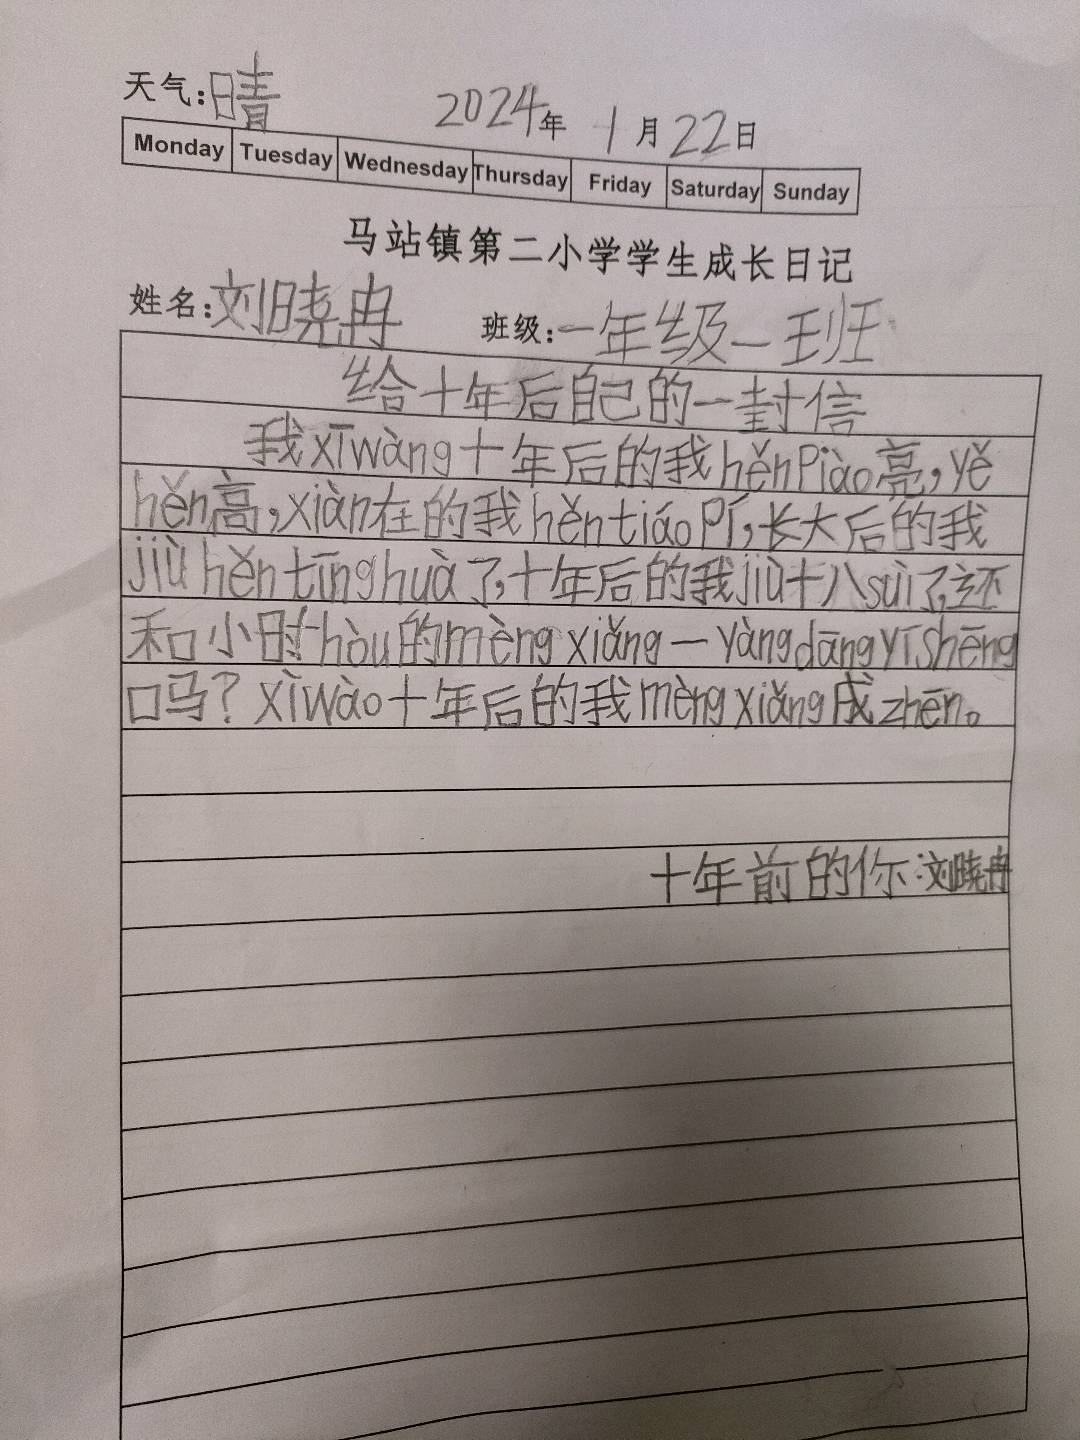 天气:晴 2024年 1月22日
Monday Tuesday Wednesday Thursday Friday Saturday Sunday
马站镇第二小学学生成长日记
姓名:刘晓冉 班级:一年级一班
给十年后自己的一封信
我xīwàng十年后的我hěnPiào亮,yě
hěn高,xiàn在的我hěntiáoPí,长大后的我
jiùhěntīnghuà了,十年后的我jiù十八suì了,还
和小时hòu的mèngxiǎng一yàngdāngyīshēng
口马?xīwào十年后的我mèngxiǎng成zhēn。
十年前的你:刘晓冉